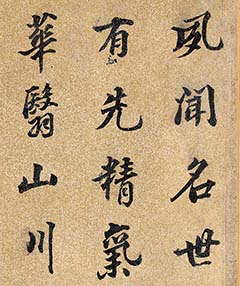 夙聞名世
有先精氣
華翳山川